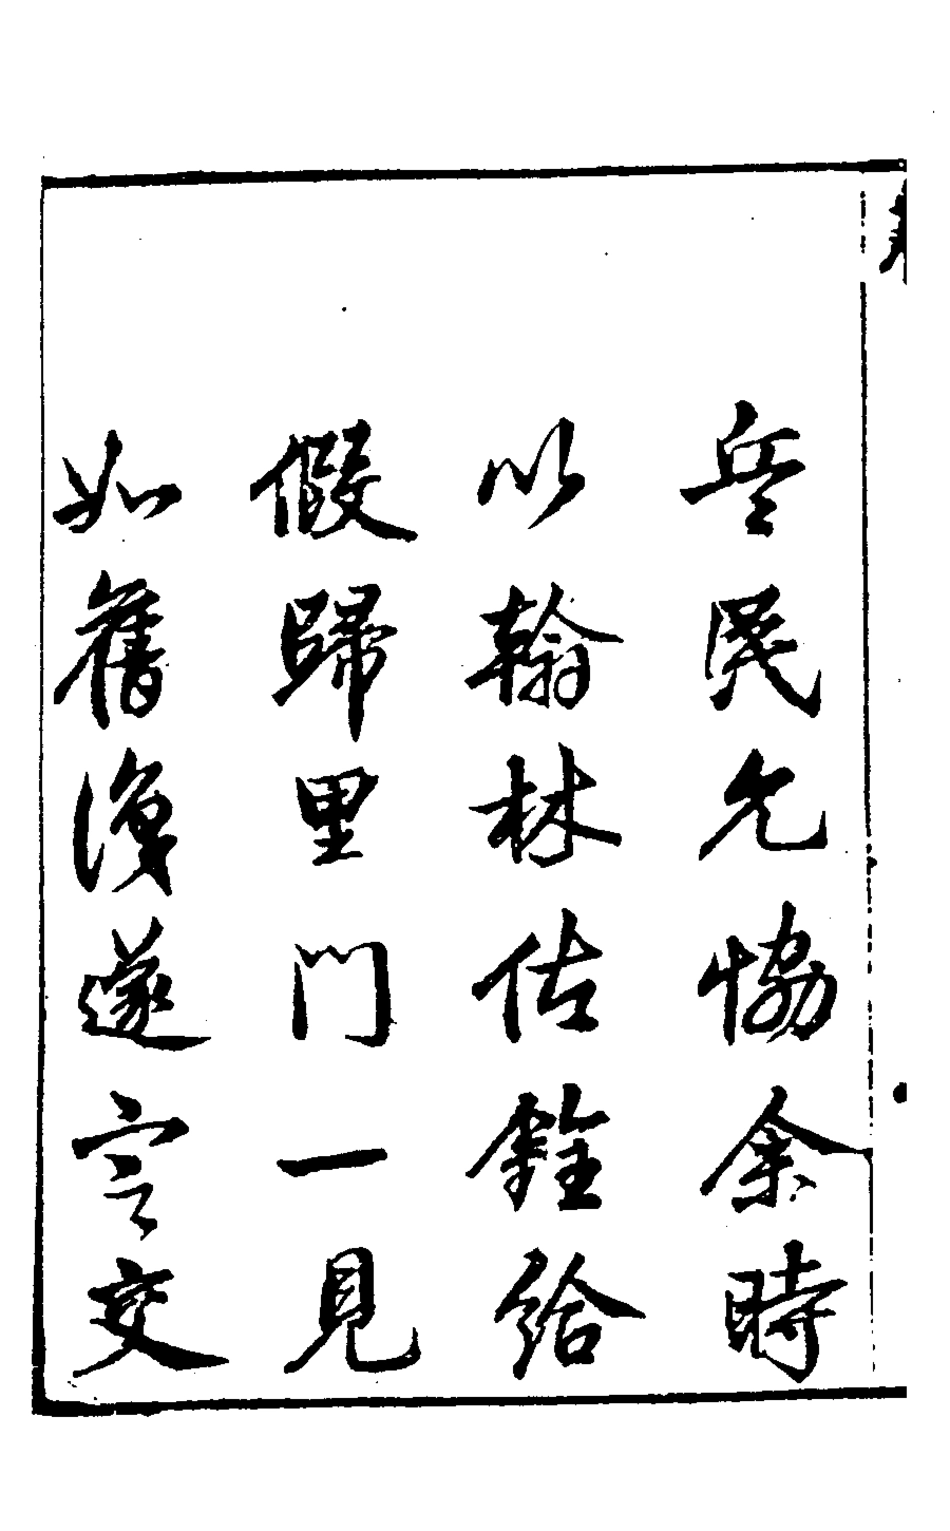 兵民允協余時
以翰林佔銓給
假歸里門一見
如舊復遂言交